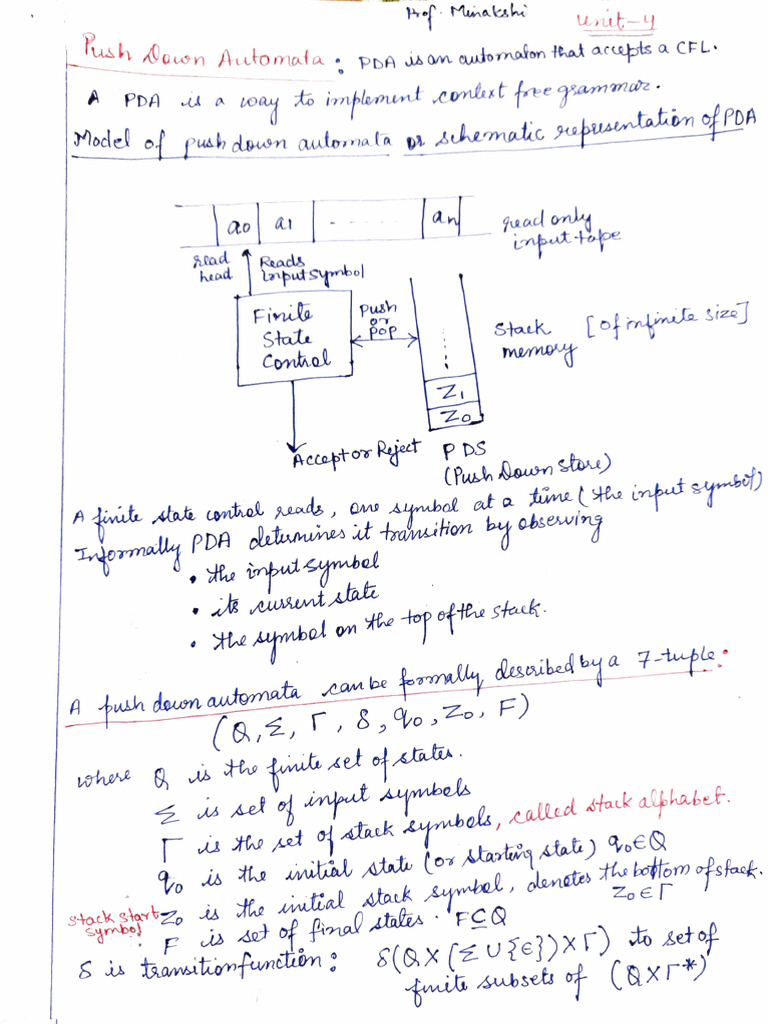 Prof. Minakshi
Unit-4
Push Down Automata : PDA is an automaton that accepts a CFL.
A PDA is a way to implement context free grammar.
Model of push down automata or schematic representation of PDA
a0 a1 ------- an
read only
input tape
read
head
Reads
input symbol
Finite
State
Control
Push
or
pop
Z1
Z0
Stack
memory
[of infinite size]
Accept or Reject
PDS
(Push Down Store)
A finite state control reads, one symbol at a time (the input symbol)
Informally PDA determines it transition by observing
• the input symbol
• its current state
• the symbol on the top of the stack.
A push down automata can be formally described by a 7-tuple:
(Q, Σ, Γ, δ, q0, Z0, F)
where Q is the finite set of states.
Σ is set of input symbols
Γ is the set of stack symbols, called stack alphabet.
q0 is the initial state (or starting state) q0∈Q
stack start
symbol
Z0 is the initial stack symbol, denotes the bottom of stack.
Z0∈Γ
F is set of final states. F⊆Q
δ is transition function: δ(Q×(Σ∪{∈})×Γ) to set of
finite subsets of (Q×Γ*)